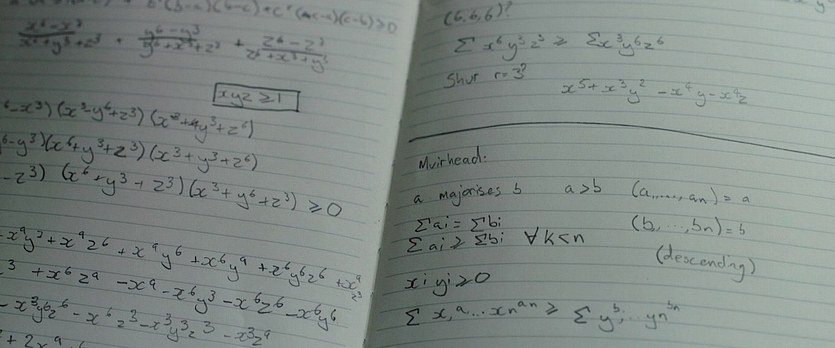 (b-a)(b-c) + c^r(c-a)(c-b) ≥ 0
x^6-x^3 / x^6+y^3+z^3 + y^6-y^3 / y^6+x^3+z^3 + z^6-z^3 / z^6+x^3+y^3
xyz ≥ 1
6-x^3)(x^3+y^6+z^3)(x^3+y^3+z^6)
6-y^3)(x^6+y^3+z^3)(x^3+y^3+z^6)
-z^3) (x^6+y^3+z^3)(x^3+y^6+z^3) ≥ 0
+ x^9z^6 + x^9y^6 + x^6y^9 + z^6y^6z^6 +
3 + x^6z^9 - x^9 - x^6y^3 - x^6z^6 - x^6y^6
- x^3y^6z^6 - x^6z^3 - x^3y^3z^3 - x^3z^9
+ 2x^9
(6,6,6)?
Σ x^6y^3z^3 ≥ Σx^3y^6z^6
Shur r=3?
x^5 + x^3y^2 - x^4y - x^4z
Muirhead:
a majorises b a>b (a,....,an) = a
Σai = Σbi (b,..,bn) = b
Σai ≥ Σbi ∀k<n
(descending)
xi yi ≥ 0
Σ x,^a...xn^an ≥ Σ y^b,... yn^bn